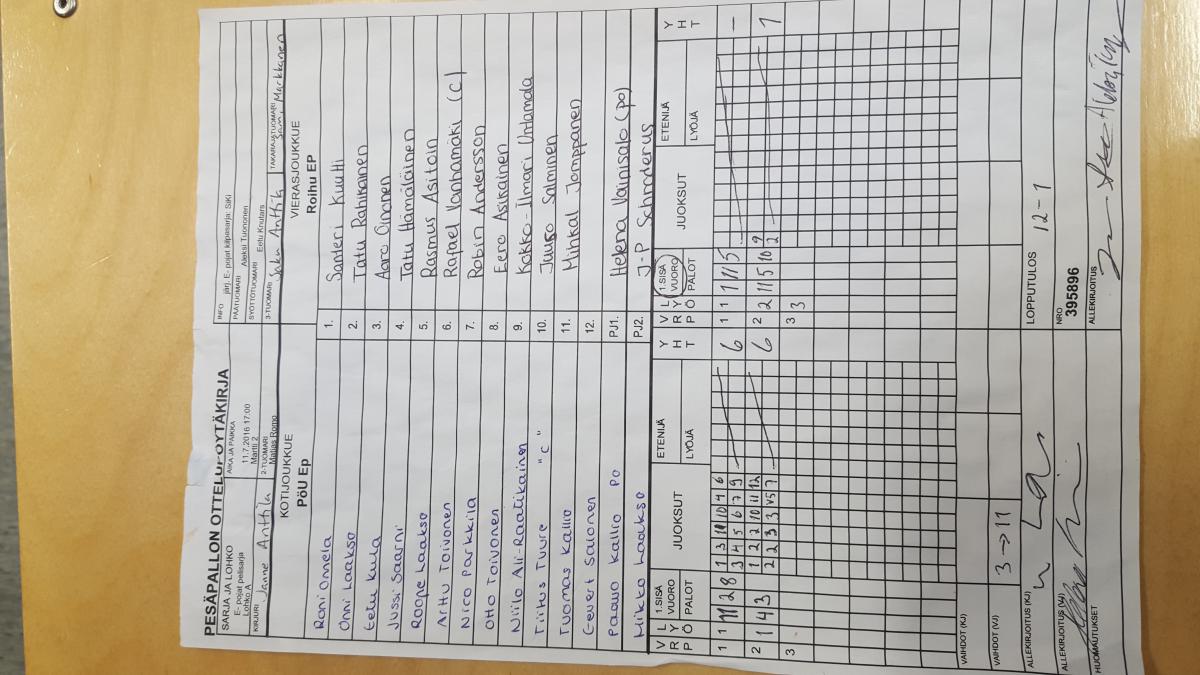 PESÄPALLON OTTELUPÖYTÄKIRJA
SARJA JA LOHKO
E- pojat pelisarja
Lohko A
AIKA JA PAIKKA
11.7.2016 17:00
Martti 2
INFO järj. E- pojat kilpasarja: SiKi
PÄÄTUOMARI Aleksi Tuononen
SYÖTTÖTUOMARI Eetu Knutars
KIRJURI Janne Anttila
2-TUOMARI Matias Romo
3-TUOMARI Saku Anttila
TAKARAJATUOMARI Sami Markkanen
KOTIJOUKKUE
PöU Ep
VIERASJOUKKUE
Roihu EP
Roni Onnela 1. Santeri Kuutti
Onni Laakso 2. Tatu Rahikainen
Eetu Kula 3. Aaro Oinonen
Jussi Saarni 4. Tatu Hämäläinen
Roope Laakso 5. Rasmus Asitoin
Arttu Toivonen 6. Rafael Vanhamäki (C)
Nico Parkkila 7. Robin Andersson
Otto Toivonen 8. Eero Asikainen
Niilo Ali-Raatikainen 9. Kokko-Ilmari Uhlamala
Tiitus Tuure "C" 10. Juuso Salminen
Tuomas Kallio 11. Mihkal Jomppanen
Eevert Salonen 12.
Paavo Kallio PO PJ1. Helena Väinisalo (po)
Mikko Laakso PJ2. J-P Schroderus
V R P L Y Ö 1.SISÄ VUORO PALOT JUOKSUT ETENIJÄ LYÖJÄ Y H T
V R P L Y Ö 1.SISÄ VUORO PALOT JUOKSUT ETENIJÄ LYÖJÄ Y H T
1 1 11 2 8 1 3 11 10 4 6 6 1 1 1 11 5 –
3 4 5 6 7 9
2 1 4 3 1 2 2 10 11 12 6 2 2 11 5 10 9 1
2 2 3 3 V5 7 2
3 3 3
VAIHDOT (KJ)
VAIHDOT (VJ) 3 → 11
LOPPUTULOS 12-1
ALLEKIRJOITUS (KJ)
NRO
395896
ALLEKIRJOITUS (VJ)
ALLEKIRJOITUS
HUOMAUTUKSET